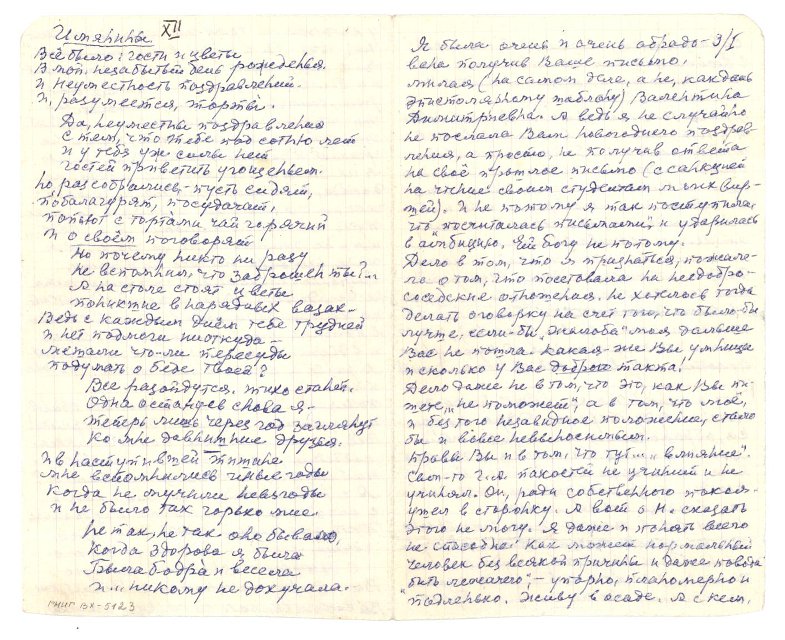 Именины XII
Всё было: гости и цветы
В мой незабытый день рожденья
И неуместность поздравлений
И, разумеется, торты.
Да, неуместны поздравления
с тем, что тебе под сотню лет
и у тебя уж силы нет
гостей приветить угощеньем.
Но, раз собрались – пусть сидят,
побалагурят, посудачат,
попьют с тортами чай горячий
и о своём поговорят
Но почему никто ни разу
не вспомнил, что заброшен ты?
А на столе стоят цветы
поникшие в нарядных вазах –
Ведь с каждым днём тебе трудней
и нет подмоги ниоткуда –
мешали что-ли пересуды
подумать о беде твоей?
Все разойдутся. Тихо станет.
Одна останусь снова я –
теперь лишь через год заглянут
ко мне давнишние друзья.
И в наступившей тишине
мне вспомнились иные годы
когда не мучили невзгоды
и не было так горько мне
не так, не так оно бывало,
Когда здорова я была
Была бодра и весела
и... никому не докучала.
ГМИГ ВХ-5123
Я была очень и очень обрадо- 3/I
вана получив Ваше письмо,
милая (на самом деле, а не, как дань
эпистолярному шаблону) Валентина
Дмитриевна. А ведь я не случайно
не послала Вам новогоднего поздрав-
ления, а просто, не получив ответа
на своё прошлое письмо (с санкцией
на чтение своим студентам моих вир-
шей). И не потому я так поступила,
что „посчиталась письмами" и ударилась
в амбицию, ей богу не потому.
Дело в том, что я признаться, пожале-
ла о том, что посетовала на недобро-
соседские отношения. Не хотелось тогда
делать оговорку на счет того, что было-бы
лучше, если-бы „жалоба" моя дальше
Вас не пошла. Какая-же Вы умница
и сколько у Вас доброго такта!
Дело даже не в том, что это, как Вы пи-
шете, „не поможет", а в том, что моё,
и без того незавидное положение, стало
бы и вовсе невыносимым.
Правы Вы и в том, что тут... „влияние".
Сам-то пакостей не учинил и не
учинял. Он, ради собственного покоя –
ушел в сторонку. А вот о Н. сказать
этого не могу. Я даже и понять всего
не способна: как может нормальный
человек без всякой причины и даже повода
„бить лежачего", – упорно, планомерно и
„подленько. Живу в осаде. А с кем,